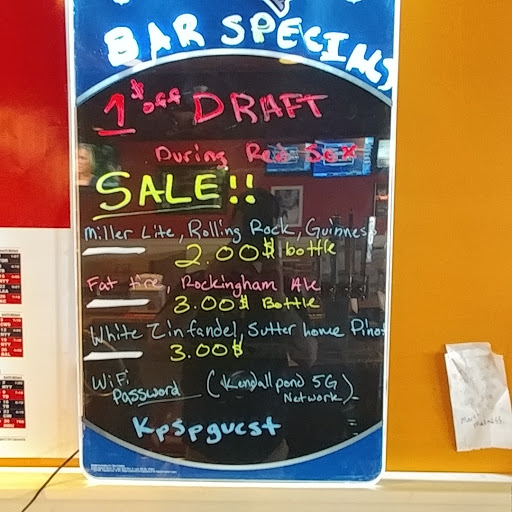 BAR SPECIALS
1$ off DRAFT
During Red Sox
SALE!!
Miller Lite, Rolling Rock, Guinness
2.00$ bottle
Fat tire, Rockingham Ale
3.00$ Bottle
White Zinfandel, Sutter home Pinot
3.00$
WiFi Password (Kendall pond 5G Network)
Kpspguest